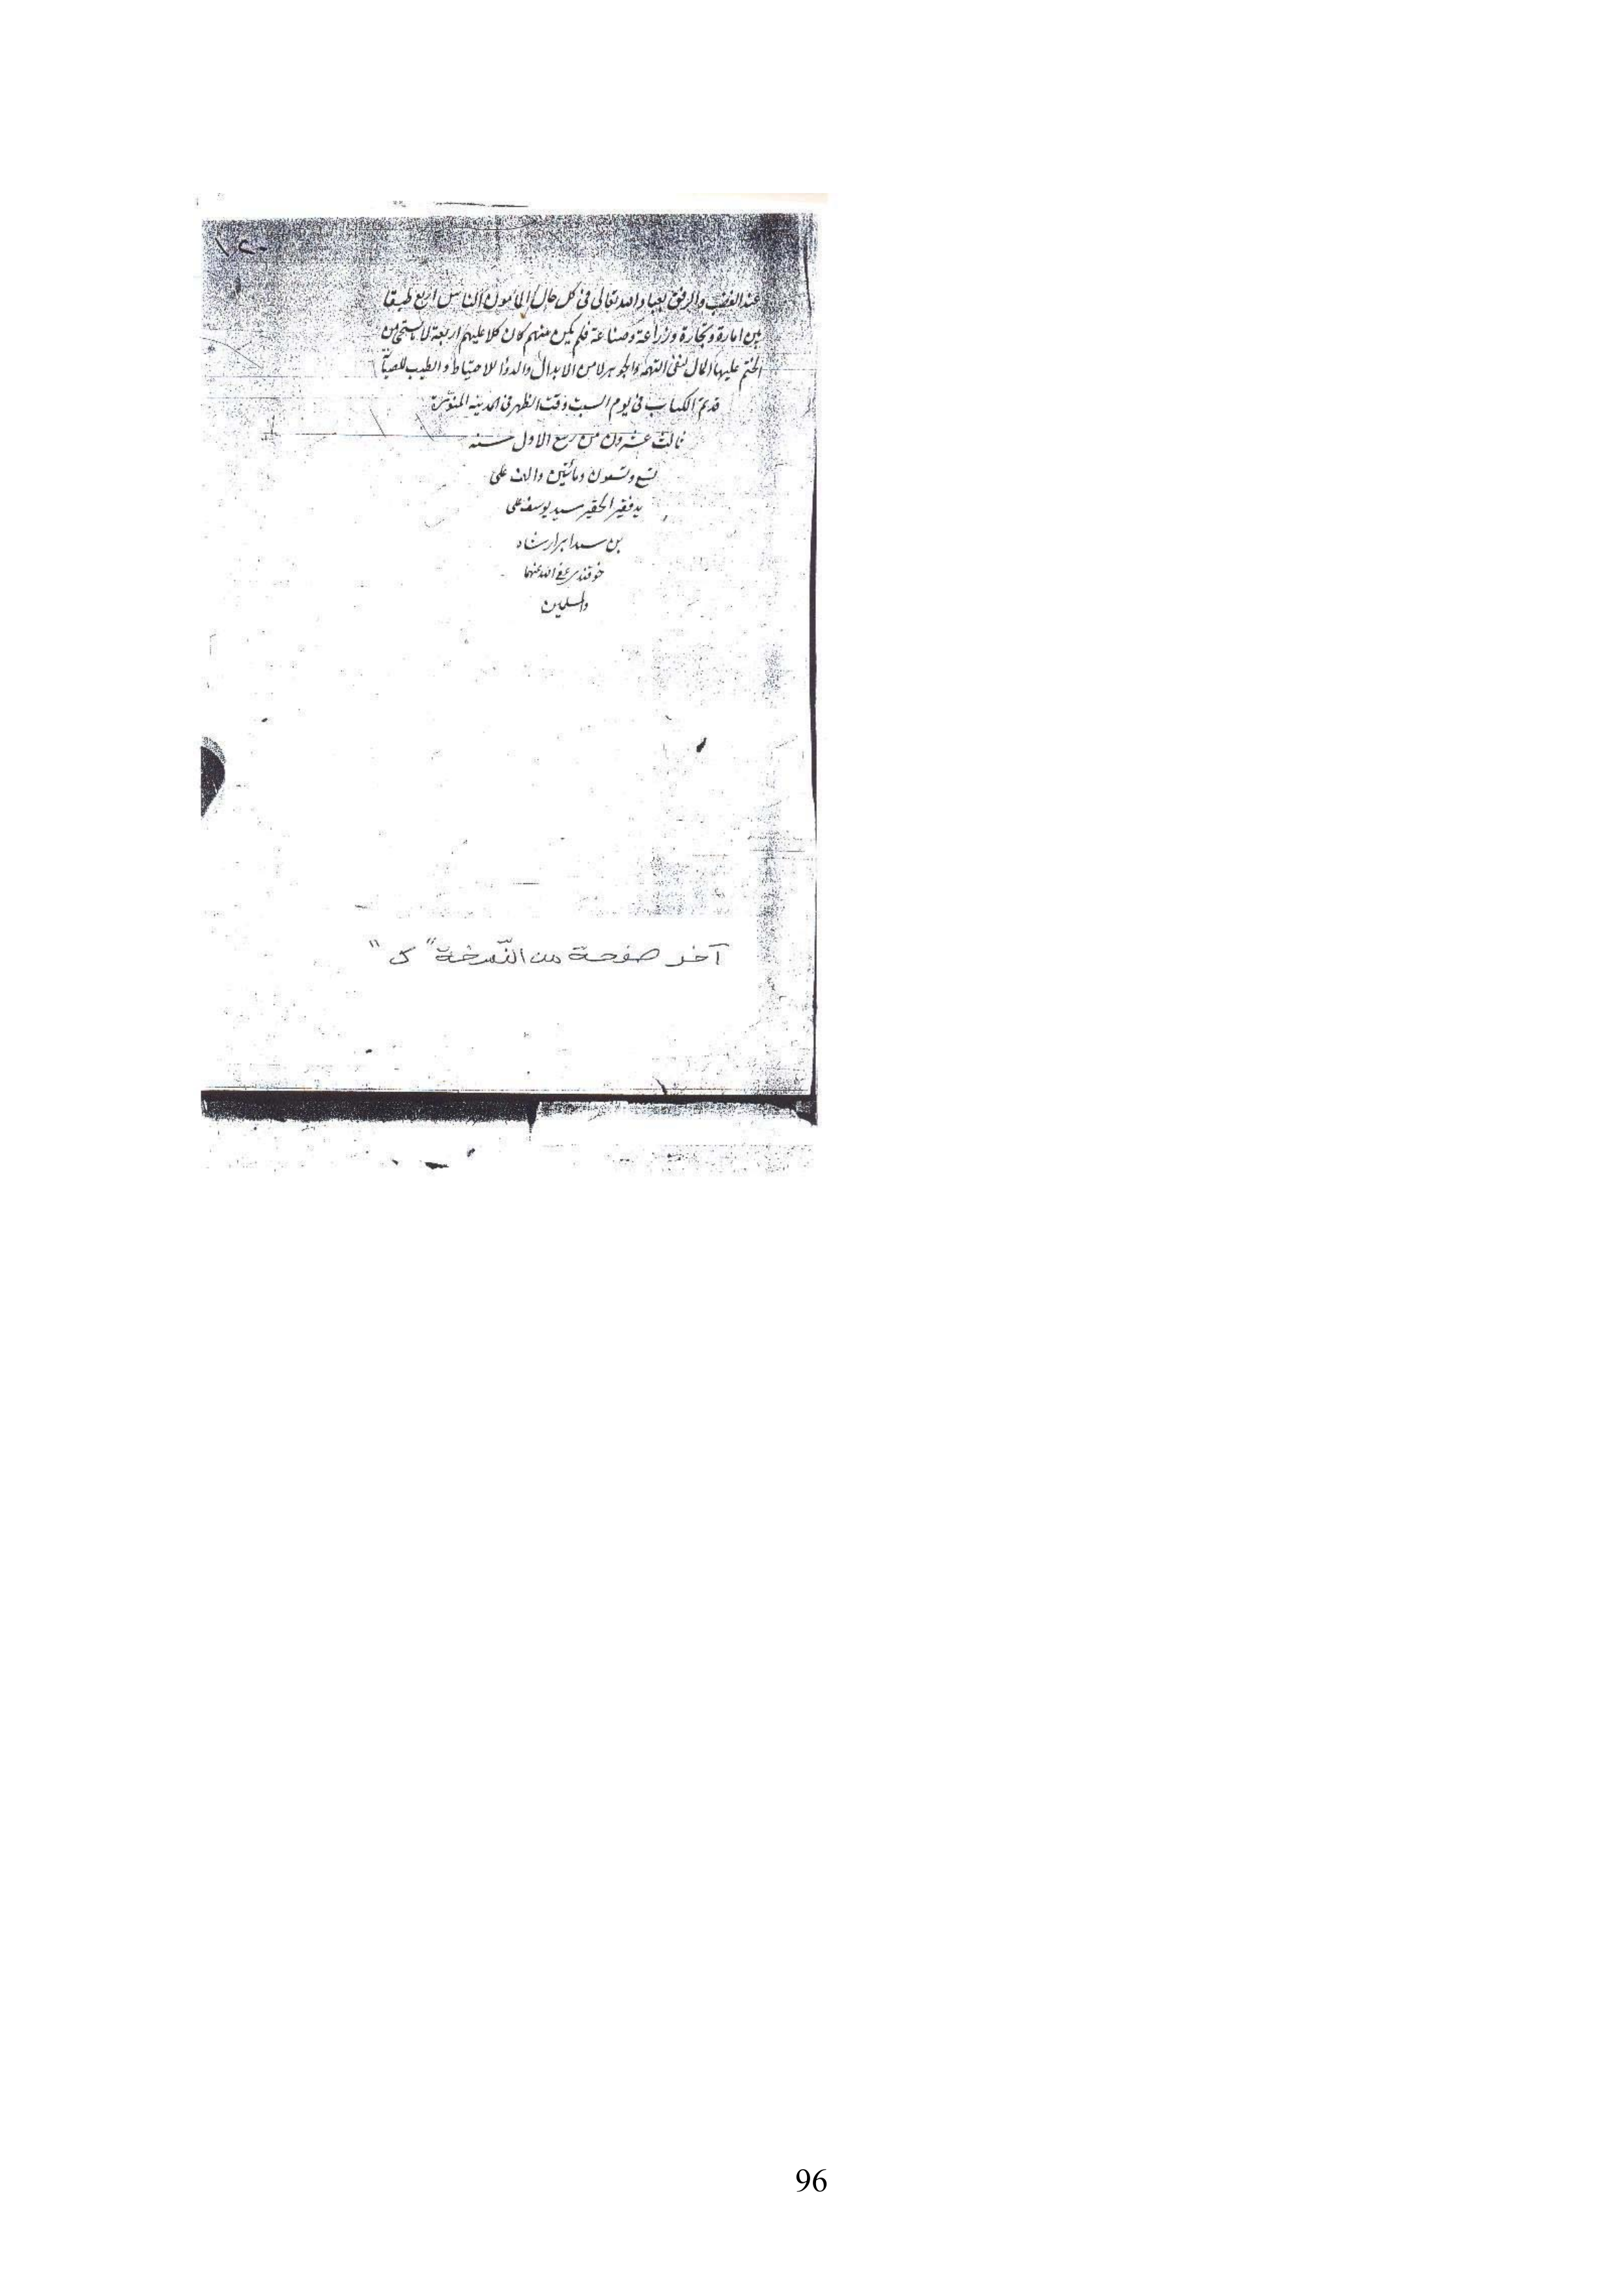 ١٠٢
عند الغضب والرفق بعباد الله تعالى فى كل حال المامون الناس اربع طبقات
بين امارة وتجارة وزراعة وصناعة فلم يكن منهم كان كلا عليهم اربعة لا يستحى من
الختم عليها المال لنفى التهمة والجوهر لا من الابدال والدوا للاحتياط والطيب للصيانة
قد تم الكتاب فى يوم السبت وقت الظهر فى المدينه المنورة
ثالث عشرون من ربيع الاول سنه
تسع وتسعون ومائتين والف على
يد فقير الحقير سيد يوسف على
بن سيد ابرار شاه
خوقندى عفى الله عنهما
والمسلمين
آخر صفحة من النّسخة " ك "
96